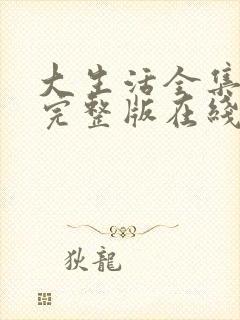 大生活全集
完整版在綫
狄龍